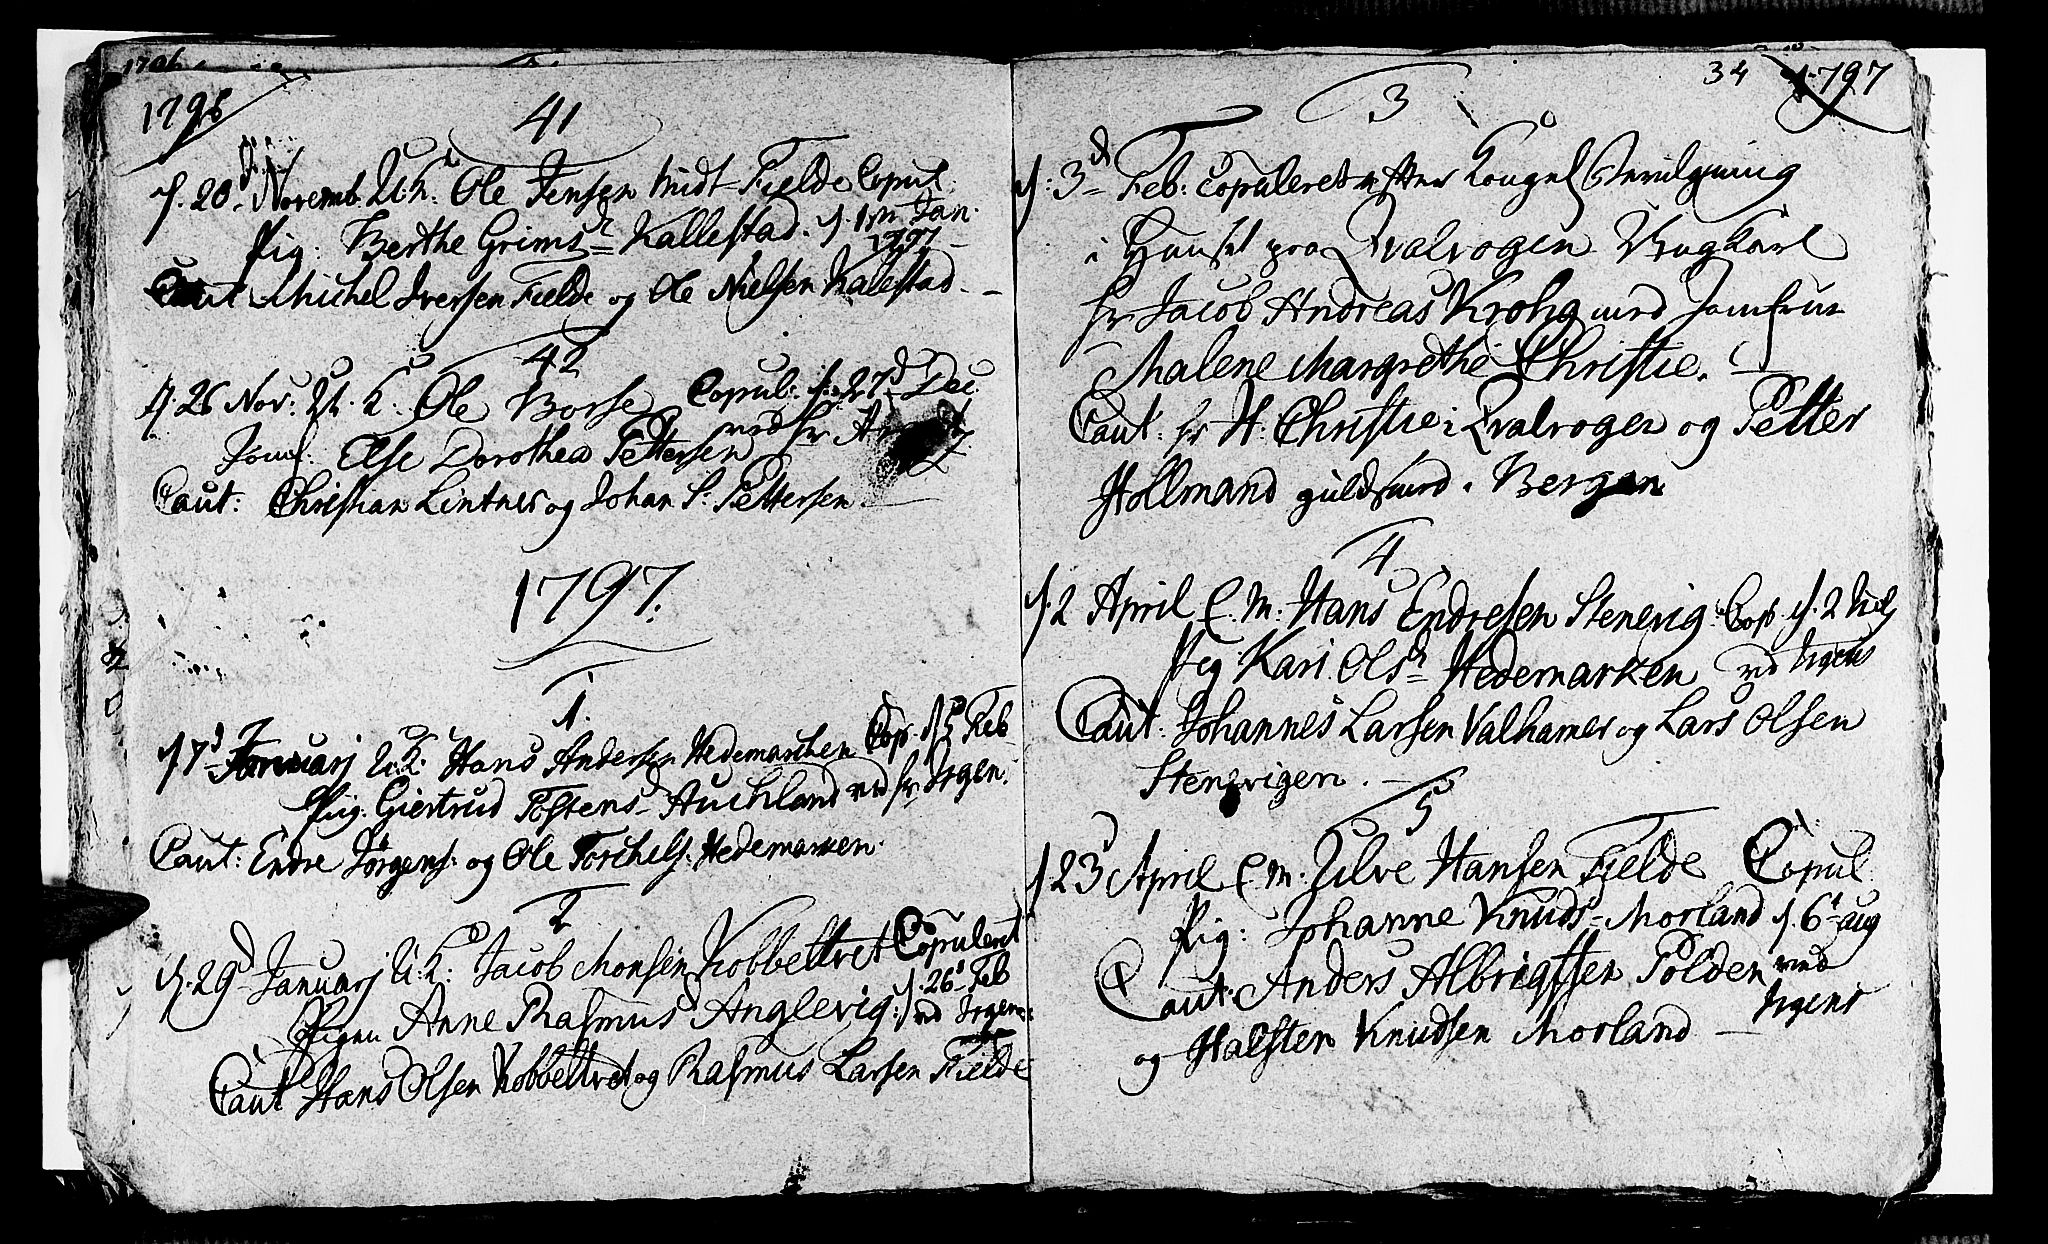 1796
41
d. 20d Novemb. U. K. Ole Jensen Midt-Fielde Copul.
Pig: Berthe Grimsdr Kallestad. d. 1 Jan. 1797
Caut Michel Iversen Fielde og Ole Nielsen Kalestad.
42
d. 26 Nov: U. K. Ole Borse Copul: d. 27d Dec
Jomf: Else Dorothea Pettersen ved hr
Caut: Christian Lintner og Johan S. Pettersen.
1797.
1.
d 7d Januarj U. K. Hans Andersen Hedemarchen Cop. d 5 Feb
Pig. Giertrud Tostensd Auchland ved hr Irgen.
Caut: Endre Jörgens. og Ole Torchels. Hedemarken.
2
d. 29d Januarj U. K: Jacob Monsen Kobbeltvet Copuleret
Pigen Anne Rasmusd Anglevig: d. 26d Feb ved Irgens
Caut Hans Olsen Kobbeltvet og Rasmus Larsen Fielde
34 1797
3
d. 3d Feb: Copuleret efter Kongel Bevilgning
i Huuset paa Qvalvogen Ungkarl
hr Jacob Andreas Krohg med Jomfrue
Malene Margrethe Christie.
Caut: hr H. Christie i Qvalvogen og Petter
Hollmand guldsmed i Bergen
4
d. 2 April E. M: Hans Endresen Stenevig: Cop d. 2 Jul
Pig Kari Olsd Hedemarken ved Irgens
Caut: Johannes Larsen Valhamer og Lars Olsen
Stenevigen.
5
d 23 April E. M. Julve Hansen Fielde Copul.
Pig: Johanne Knudsd Morland d. 6t aug
Caut: Anders Albrigtsen Polden ved
og Halsten Knudsen Morland Irgens